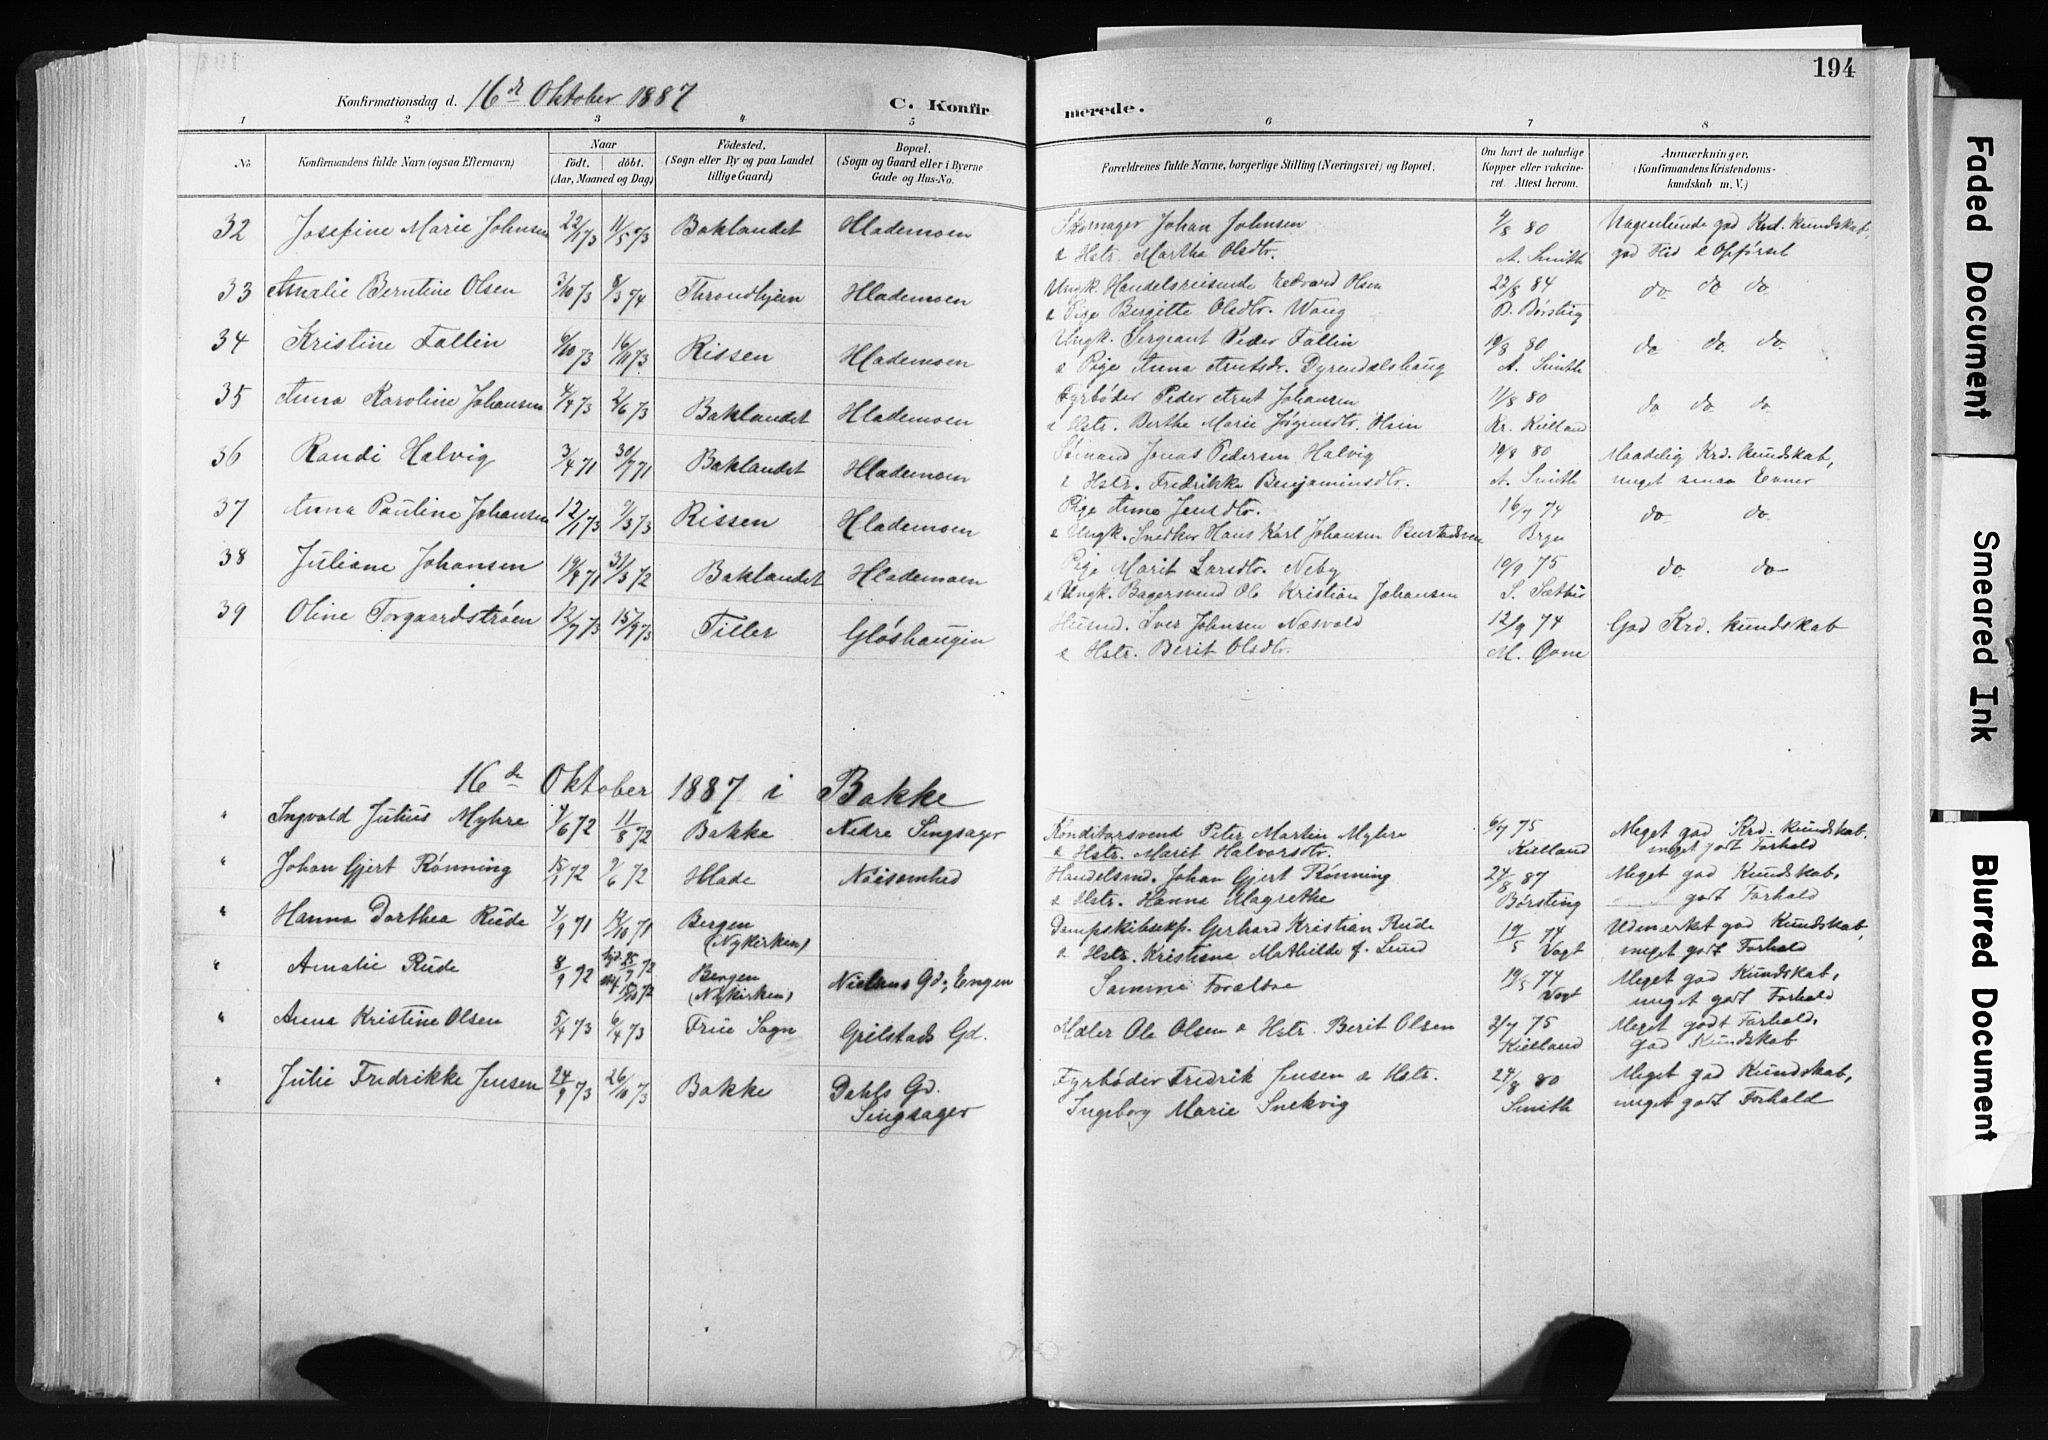 194
Konfirmationsdag d. 16de Oktober 1887 C. Konfirmerede.
1 2 3 4 5 6 7 8
No. Konfirmandens fulde Navn (ogsaa Efternavn) Naar födt. döbt. (Aar, Maaned og Dag) Födested. (Sogn eller By og paa Landet tillige Gaard) Bopæl. (Sogn og Gaard eller i Byerne Gade og Hus-No. Forældrenes fulde Navne, borgerlige Stilling (Næringsvei) og Bopæl. Om havt de naturlige Kopper eller vakcineret. Attest herom. Anmærkninger. (Konfirmandens Kristendomskundskab m. V.)
32 Josefine Marie Johnsen 22/1 73 11/5 73 Baklandet Hlademoen Skomager Johan Johnsen 9/8 80 god Krd. kundskab,
& Hstr. Martha Olsdtr. A. Smith god Flid & Opförsel
33 Amalie Berntine Olsen 3/10 73 8/3 74 Throndhjem Hlademoen Ungk. Handelsreisende Edvard Olsen 22/8 84 do do do
& Pige Bergitte Olsdtr. Wang B. Børsting
34 Kristine Fallin 6/10 73 16/11 73 Rissen Hlademoen Ungk. Sergeant Peder Fallin 19/8 80 do do do
& Pige Anna Arntsdr. Dyrendalshaug A. Smith
35 Anna Karoline Johansen 4/4 73 2/6 73 Baklandet Hlademoen Fyrbøder Peder Arnt Johansen 11/8 80 do do do
& Hstr. Berthe Marie Jørgensdtr. Kr. Kielland
36 Randi Halvig 3/4 71 30/7 71 Baklandet Hlademoen Sømand Jonas Pedersen Halvig 19/8 80 Maadelig Krd. kundskab,
& Hstr. Fredrikke Benjaminsdtr. A. Smith meget smaa Evner
37 Anna Pauline Johansen 12/1 73 9/3 73 Rissen Hlademoen Pige Anna Jensdtr. 16/7 74 do do
& Ungk. Snedker Hans Karl Johansen Bryn
38 Juliane Johansen 19/9 71 31/3 72 Baklandet Hlademoen Pige Marit Larsdtr. Neby 10/9 75 do do
& Ungk. Bagersvend Ole Kristian Johansen
39 Oline Torgaardstrøen 12/7 73 15/9 73 Tiller Gløshaugen Husmd. Iver Johnsen Næsvold 12/9 74 God Krd. kundskab
& Hstr. Berit Olsdtr. M. Qvne
16de Oktober 1887 i Bakke
" Ingvald Julius Myhre 7/6 72 11/8 72 Bakke Nedre Singsager Konditorsvend Peter Martin Myhre 6/7 75 Meget god Krd. kundskab,
& Hstr. Marit Halvorsdtr. Kielland meget godt Forhold
" Johan Gjert Rønning 15/1 72 9/6 72 Hlade Nøisomhed Handelsmd. Johan Gjert Rønning 24/8 87 Meget god Kundskab,
& Hstr. Hanna Magrethe Børsting godt Forhold
" Hanna Dorthea Rude 4/9 71 12/10 71 Bergen (Nykirken) Dampskibsexp. Gerhard Kristian Rude 19/5 74 Udmærket god Kundskab,
& Hstr. Kristiane Mathilde f. Lund Vogt meget godt Forhold
" Amalie Rude 8/9 72 hjd. 25/9 72 Bergen (Nykirken) Nielsens Gd., Engen Samme Forældre 19/5 74 Vogt Meget god Kundskab,
meget godt Forhold
" Anna Kristine Olsen 5/4 73 6/4 73 Frue Sogn Grilstads Gd. Maler Ole Olsen & Hstr. Berit Olsen 21/7 75 Kielland Meget godt Forhold,
god Kundskab
" Julie Fredrikke Jensen 24/9 73 26/10 73 Bakke Dahls Gd. Fyrbøder Fredrik Jensen & Hstr. 24/8 80 Meget god Kundskab,
Singsager Ingeborg Marie Snekvig Smith meget godt Forhold
Faded Document
Smeared Ink
Blurred Document